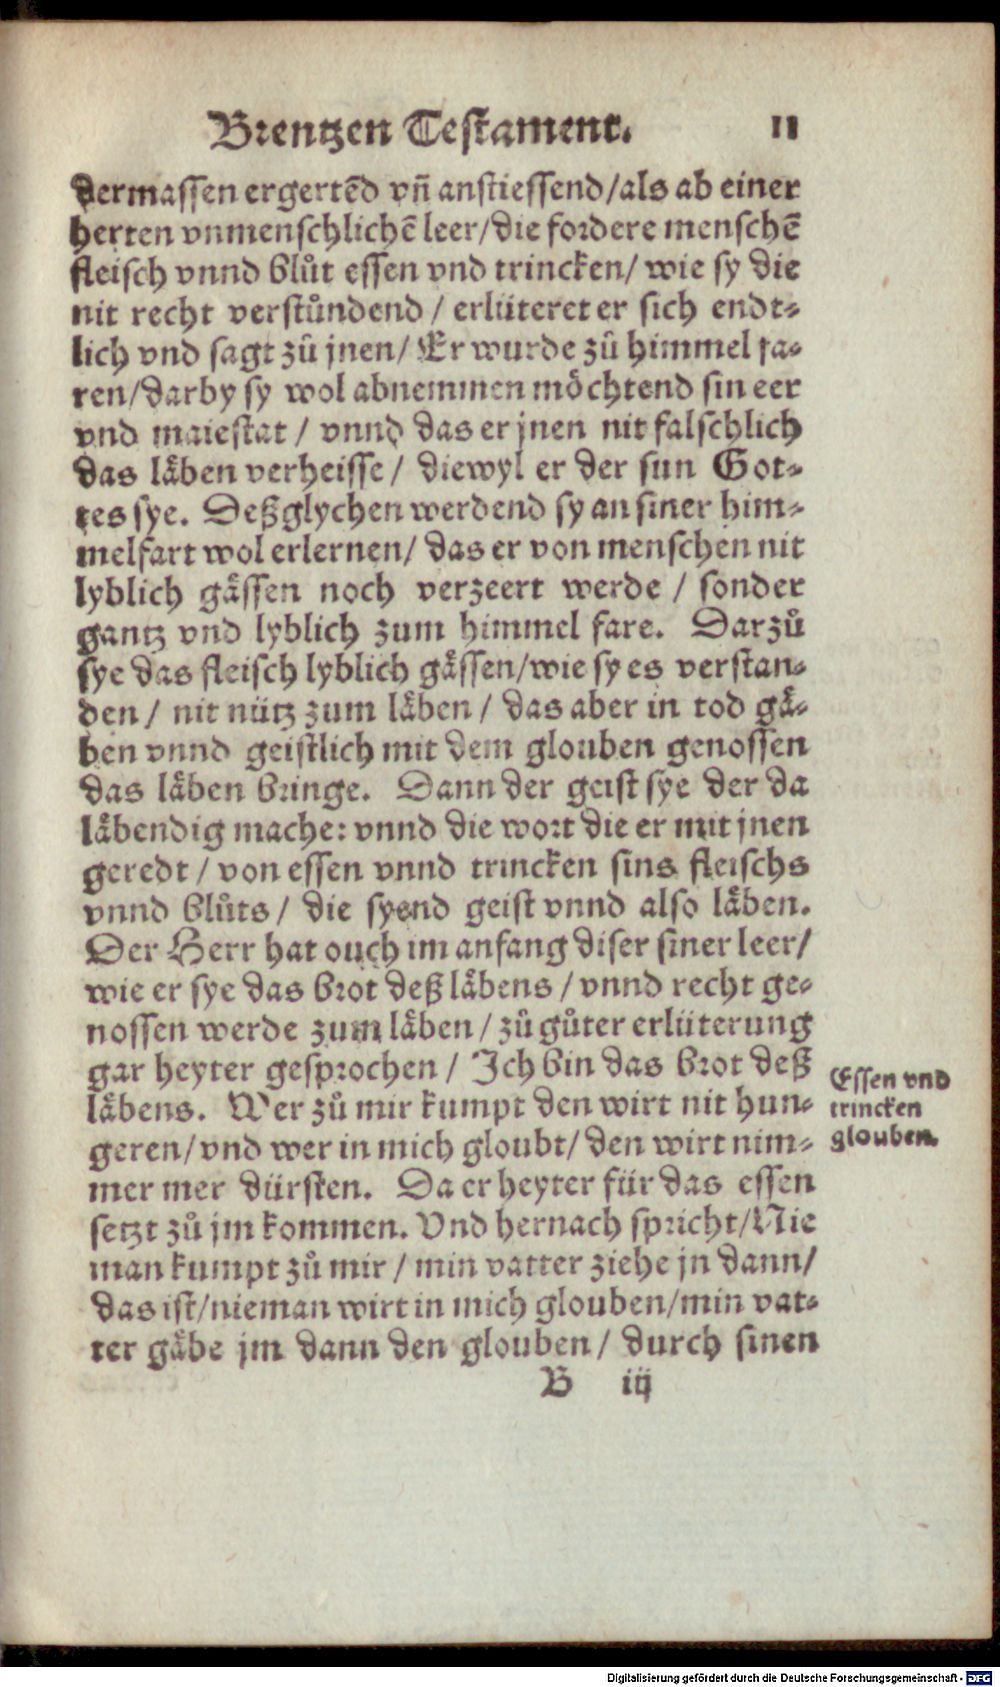 Brentzen Testament. 11
dermassen ergertēd vñ anstiessend/als ab einer
herten vnmenschlichē leer/die fordere menschē
fleisch vnnd blůt essen vnd trincken/ wie sy die
nit recht verstůndend / erlüteret er sich endt-
lich vnd sagt zů jnen/ Er wurde zů himmel fa-
ren/darby sy wol abnemmen möchtend sin eer
vnd maiestat / vnnd das er jnen nit falschlich
das läben verheisse / diewyl er der sun Got-
tes sye. Deßglychen werdend sy an siner him-
melfart wol erlernen/ das er von menschen nit
lyblich gässen noch verzeert werde / sonder
gantz vnd lyblich zum himmel fare. Darzů
sye das fleisch lyblich gässen/wie sy es verstan-
den / nit nütz zum läben / das aber in tod gä-
ben vnnd geistlich mit dem glouben genossen
das läben bringe. Dann der geist sye der da
läbendig mache: vnnd die wort die er mit jnen
geredt / von essen vnnd trincken sins fleischs
vnnd blůts / die syend geist vnnd also läben.
Der Herr hat ouch im anfang diser siner leer/
wie er sye das brot deß läbens / vnnd recht ge-
nossen werde zum läben / zů gůter erlüterung
gar heyter gesprochen / Ich bin das brot deß
läbens. Wer zů mir kumpt den wirt nit hun-
geren/vnd wer in mich gloubt/ den wirt nim-
mer mer dürsten. Da er heyter für das essen
setzt zů jm kommen. Vnd hernach spricht/Nie
man kumpt zů mir / min vatter ziehe jn dann/
das ist/nieman wirt in mich glouben/min vat-
ter gäbe jm dann den glouben / durch sinen
Essen vnd
trincken
glouben.
B iij
Digitalisierung gefördert durch die Deutsche Forschungsgemeinschaft - DFG